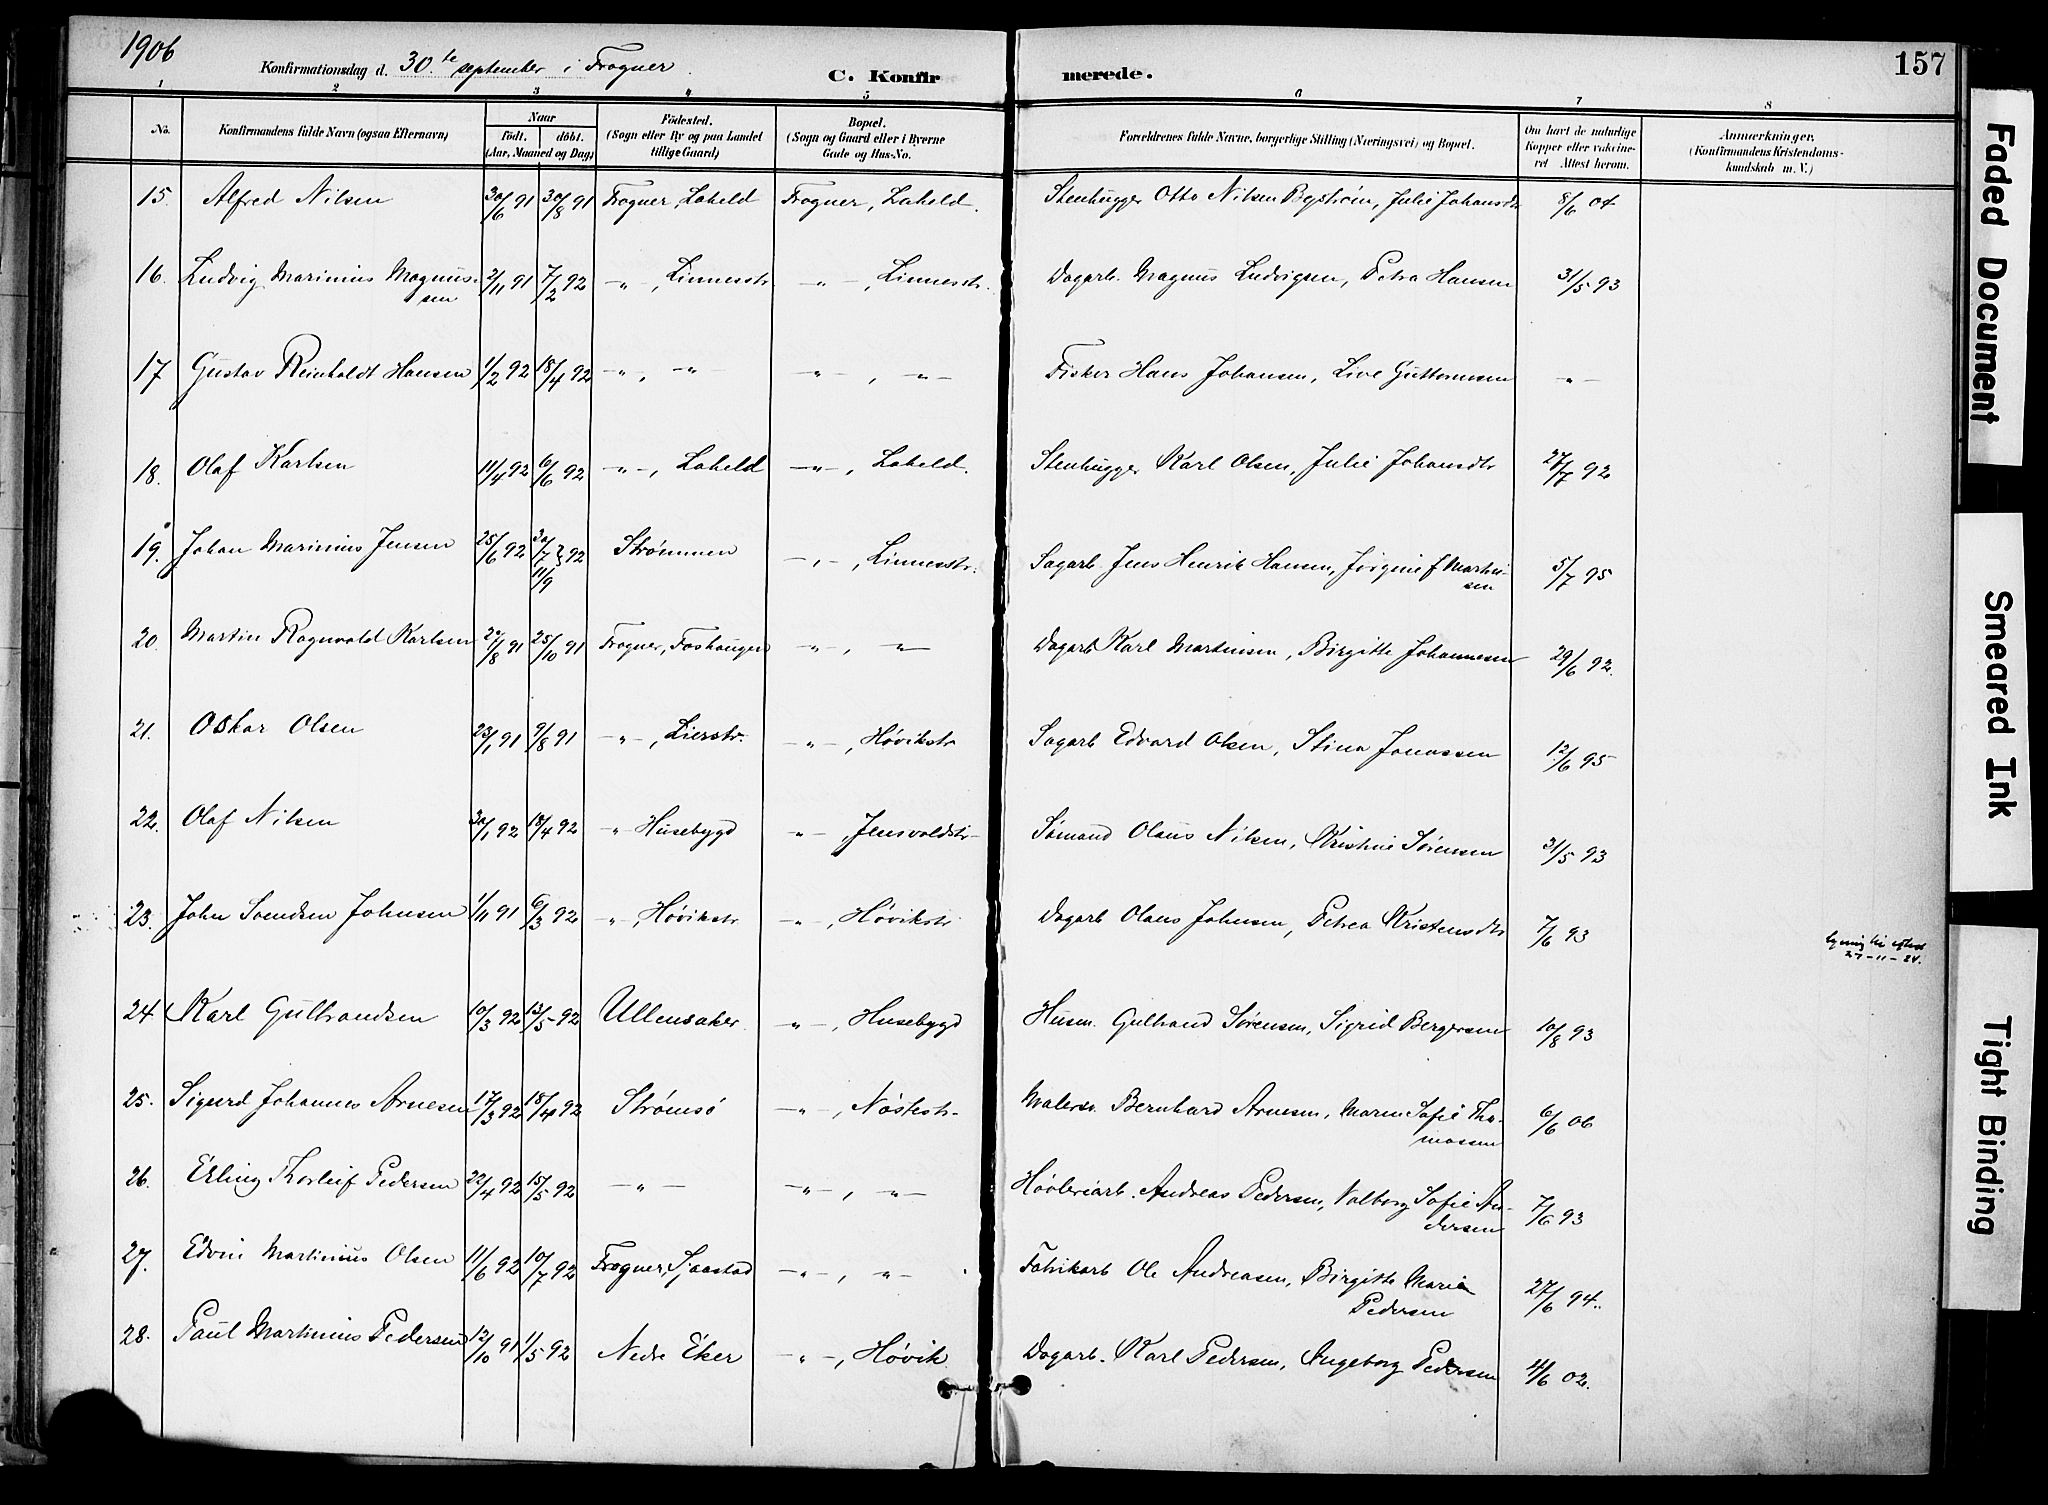 1906
Konfirmationsdag d. 30.te september i Frogner.
C. Konfirmerede.
157
1 2 3 4 5 6 7 8
No.
Konfirmandens fulde Navn (ogsaa Efternavn)
Naar
födt. döbt.
(Aar, Maaned og Dag)
Födested.
(Sogn eller By og paa Landet
tillige Gaard)
Bopæl.
(Sogn og Gaard eller i Byerne
Gade og Hus-No.
Forældrenes fulde Navne, borgerlige Stilling (Næringsvei) og Bopæl.
Om havt de naturlige
Kopper eller vakcine-
ret Attest herom.
Anmærkninger,
(Konfirmandens Kristendoms-
kundskab m. V.)
15. Alfred Nilsen 30/6 91 30/8 91 Frogner, Laheld Frogner, Laheld. Stenhugger Otto Nilsen Byström, Julie Johansdtr 8/6 04
16. Ludvig Marinius Magnus-
sen 2/11 91 7/2 92 -"-, Linnesstr. -"-, Linnesstr. Dagarb. Magnus Ludvigsen, Petra Hansen 31/5 93
17 Gustav Reinholdt Hansen 1/2 92 18/4 92 -"-, -"- -"-, -"- Fisker Hans Johansen, Live Guttormsen -"-
18. Olaf Karlsen 11/4 92 6/6 92 -"-, Laheld -"-, Laheld. Stenhugger Karl Olsen, Julie Johansdtr 27/7 92
19. Johan Marinius Jensen 25/6 92 30/7 11/9 } 92 Strømmen -"-, Linnesstr. Sagarb. Jens Henrik Hansen, Jörgine f Martin-
sen 5/7 95
20. Martin Ragnvald Karlsen 20/8 91 25/10 91 Frogner, Foshaugen -"-, -"- Dagarb Karl Martinsen, Birgitte Johannesen 29/6 92.
21. Oskar Olsen 23/1 91 9/8 91 -"-, Lierstr. -"-, Høvikstr Sagarb Edvard Olsen, Stina Jonassen 12/6 95
22. Olaf Nilsen 30/1 92 18/4 92 -"- Husebygd -"-, Jensvoldstr- Sømand Olaus Nilsen, Kristine Sørensen 31/5 93
23. John Svendsen Johnsen 1/11 91 6/3 92 -"-, Høvikstr -"-, Høvikstr Dagarb Olaus Johnsen, Petrea Kristensdtr 7/6 93
27-11-24.
24 Karl Gulbrandsen 10/3 92 13/5 92 Ullensaker -"-, Husebygd Husm. Gulbrand Sørensen, Sigrid Bergersen 10/8 93
25. Sigurd Johannes Arnesen 17/3 92 18/4 92 Strømsø -"-, Nöstestr- Malersv. Bernhard Arnesen, Maren Sofie Tho-
massen 6/6 06
26. Erling Thorleif Pedersen 22/4 92 15/5 92 -"- -"-, -"- Høvleriarb. Andreas Pedersen, Valborg Sofie An-
dersen 7/6 93
27. Edvin Martinius Olsen 11/6 92 10/7 92 Frogner, Sjaastad -"-, -"- Fabrikarb Ole Andreasen, Birgitte Marie
Pedersen 27/6 94.
28. Paul Martinius Pedersen 12/10 91 1/5 92 Nedre Eker -"-, Høvik. Dagarb. Karl Pedersen, Ingeborg Pedersen 4/6 02.
Faded Document
Smeared Ink
Tight Binding